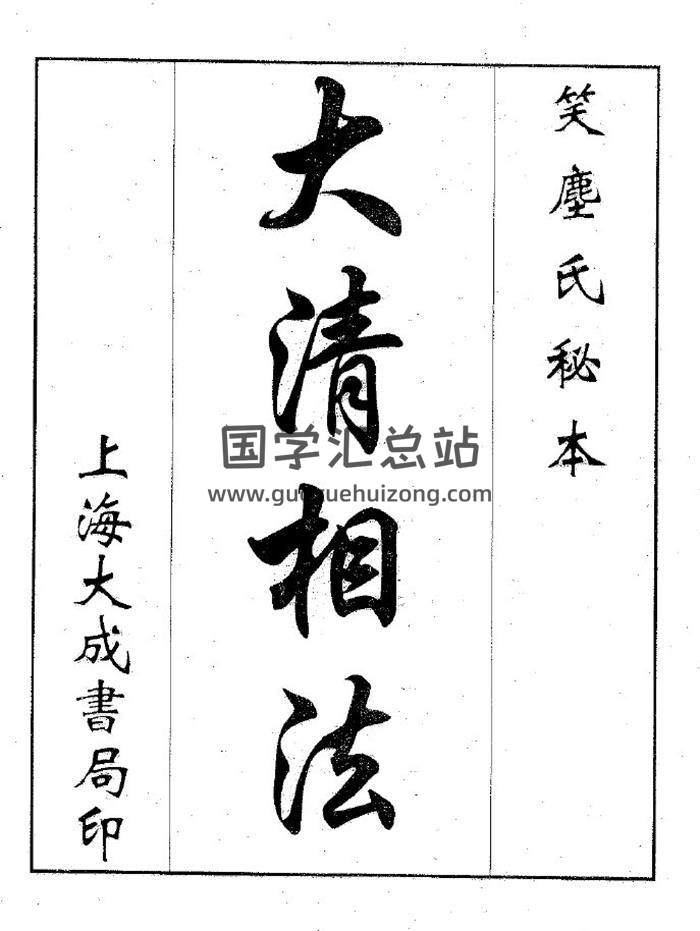 笑塵氏秘本
大清相法
上海大成書局印
国学汇总站
www.guoxuehuizong.com